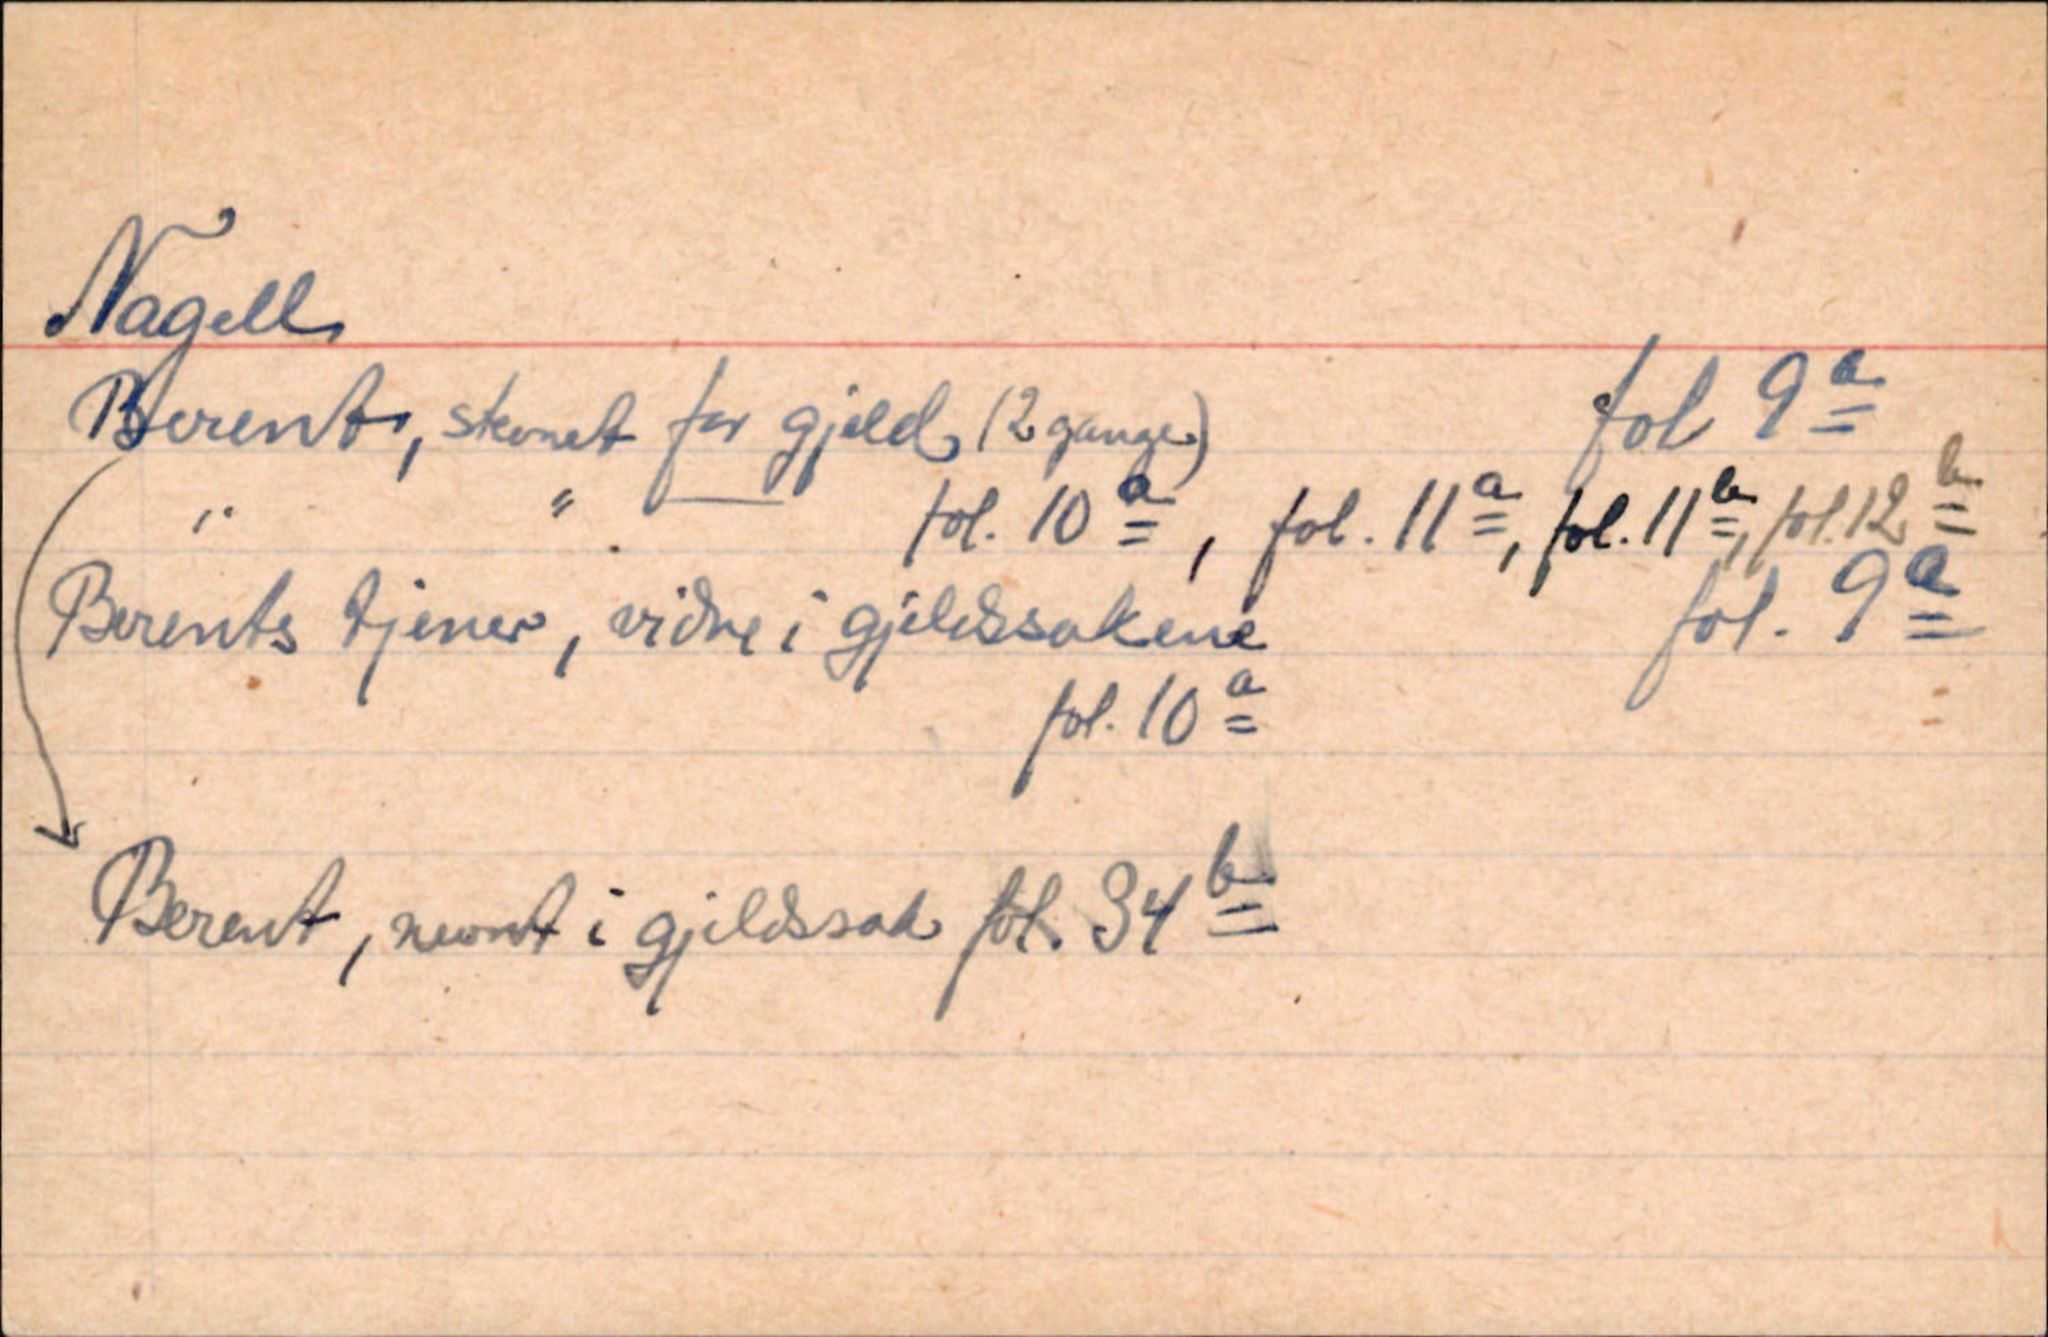 Nagell
Berent, stevnet for gjeld (2 gange) fol 9a
" " — fol. 10a, fol. 11a, fol. 11b, fol. 12b
Berents tjener, vidne i gjeldssakene fol. 9a
fol. 10a
Berent, nevnt i gjeldssak fol. 34b